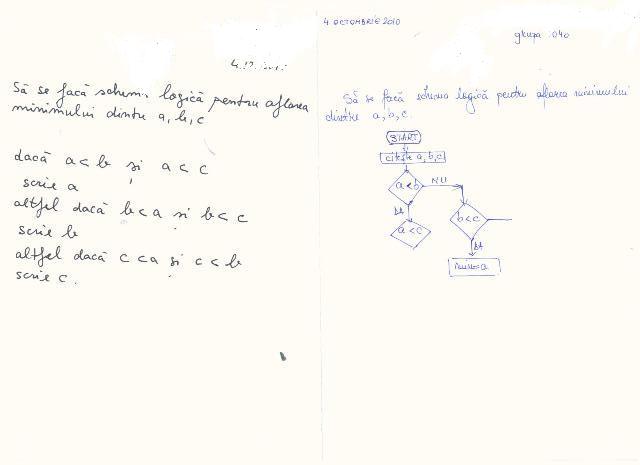 Să se facă schema logică pentru aflarea
minimului dintre a, b, c
dacă a < b și a < c
scrie a
altfel dacă b < a și b < c
scrie b
altfel dacă c < a și c < b
scrie c.
4 OCTOMBRIE 2010
grupa 040
Să se facă schema logică pentru aflarea minimului
dintre a, b, c.
START
citește a, b, c
a < b
NU
DA
a < c
b < c
DA
min=a